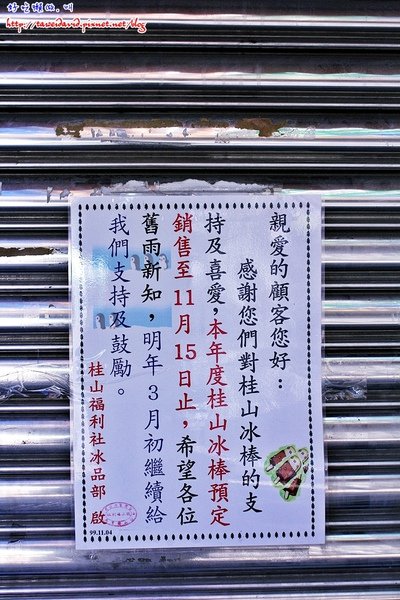 好吃懶做.叫
http://taweidavid.pixnet.net/blog
親愛的顧客您好：
感謝您們對桂山冰棒的支
持及喜愛，本年度桂山冰棒預定
銷售至11月15日止，希望各位
舊雨新知，明年3月初繼續給
我們支持及鼓勵。
桂山福利社冰品部 啟
99.11.04